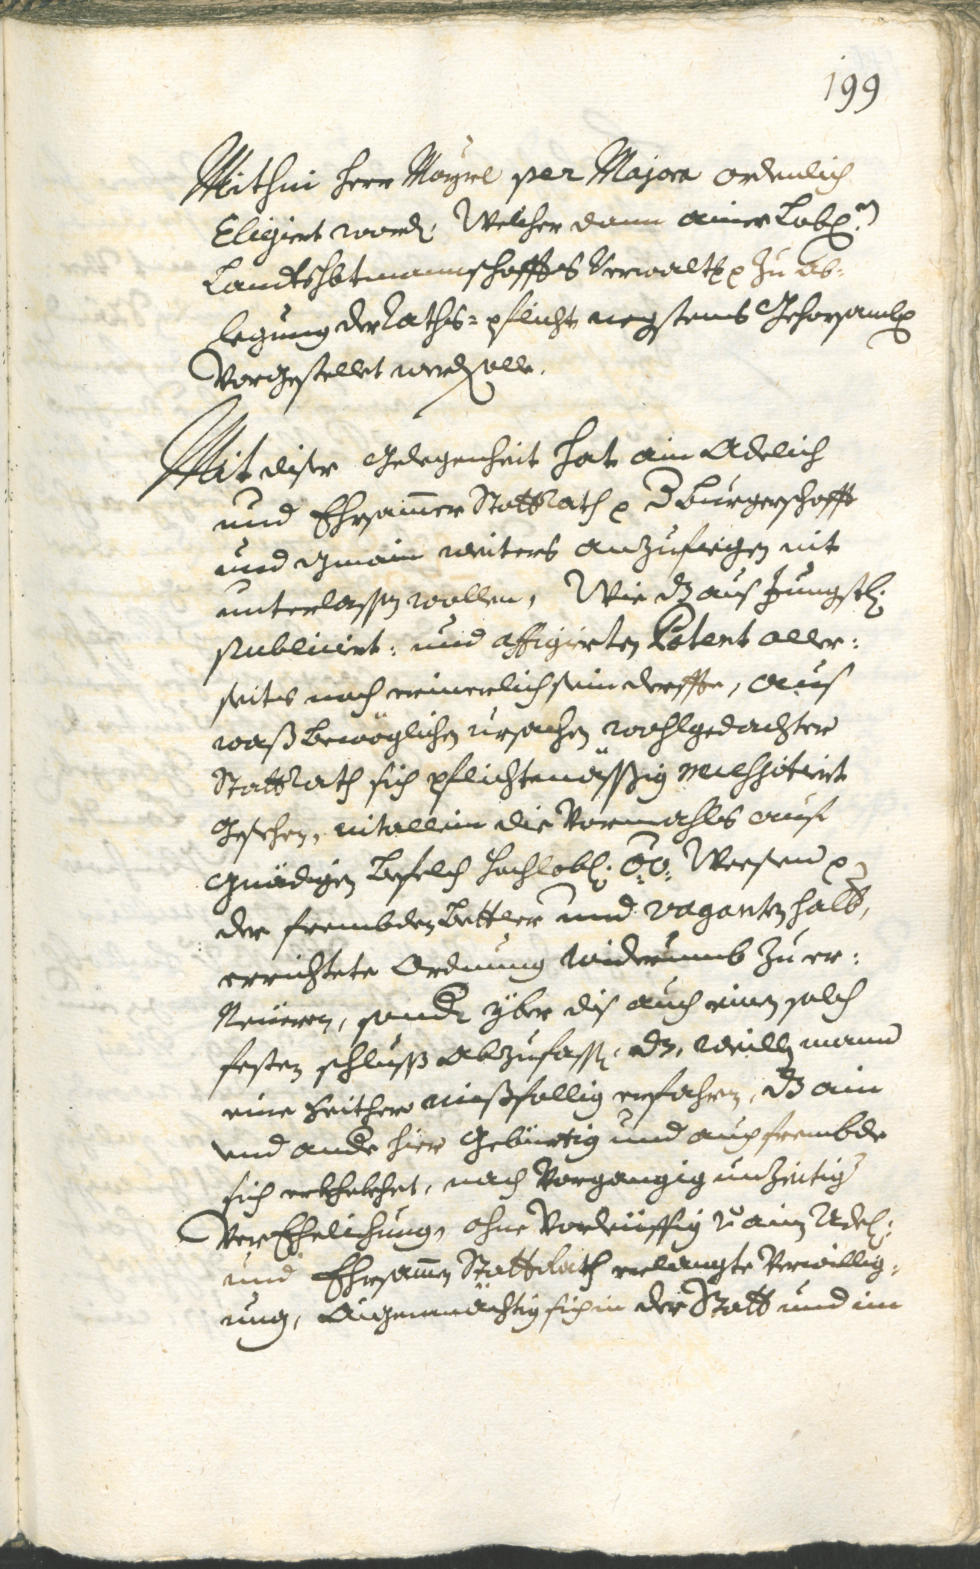 199
Mithin Herr Mayrl per Majora ordenlich
Eligiert word. Welcher dann ainer Lobl.en
Landtshbtmannschaffts Verwaltg zu ab-
legung der Raths-pflicht negstens Gehorsambl.
Vorgestellet werd solle.
Mit diser gelegenheit hat ain Adelich
und Ehrsamer StattRath der Burgerschafft
und gmain weiters anzufiegen nit
unterlassen wollen, Wie dz aus Jungstl:
publicirt: und affigierten Patent aller:
seits noch erinerlich sein derffte, aus
waß bewöglichen ursachen wohlgedachter
StattRath sich pflichtmässig
Gesehen, nit allein die Vormahls auf
gnädigen Befelch Hochlobl: OÖ: Weesend
der frembden Bettler und vaganten halb,
errichtete Ordnung widerumb zu er:
Neuern, sond yber dis auch einen solch
festen schluss abzufassen, dz, weillen mann
eine Zeithero mißfallig erfahren, dz ain
und ande hier Gebürtig und auch frembde
sich, nach Vorgangig unzeitig
VerEhelichung, ohne Vorleiffig ainen Adel:
und Ehrsamen StattRath erlangte Verwillig-
ung, Aigenmächtig sich in der Statt und im